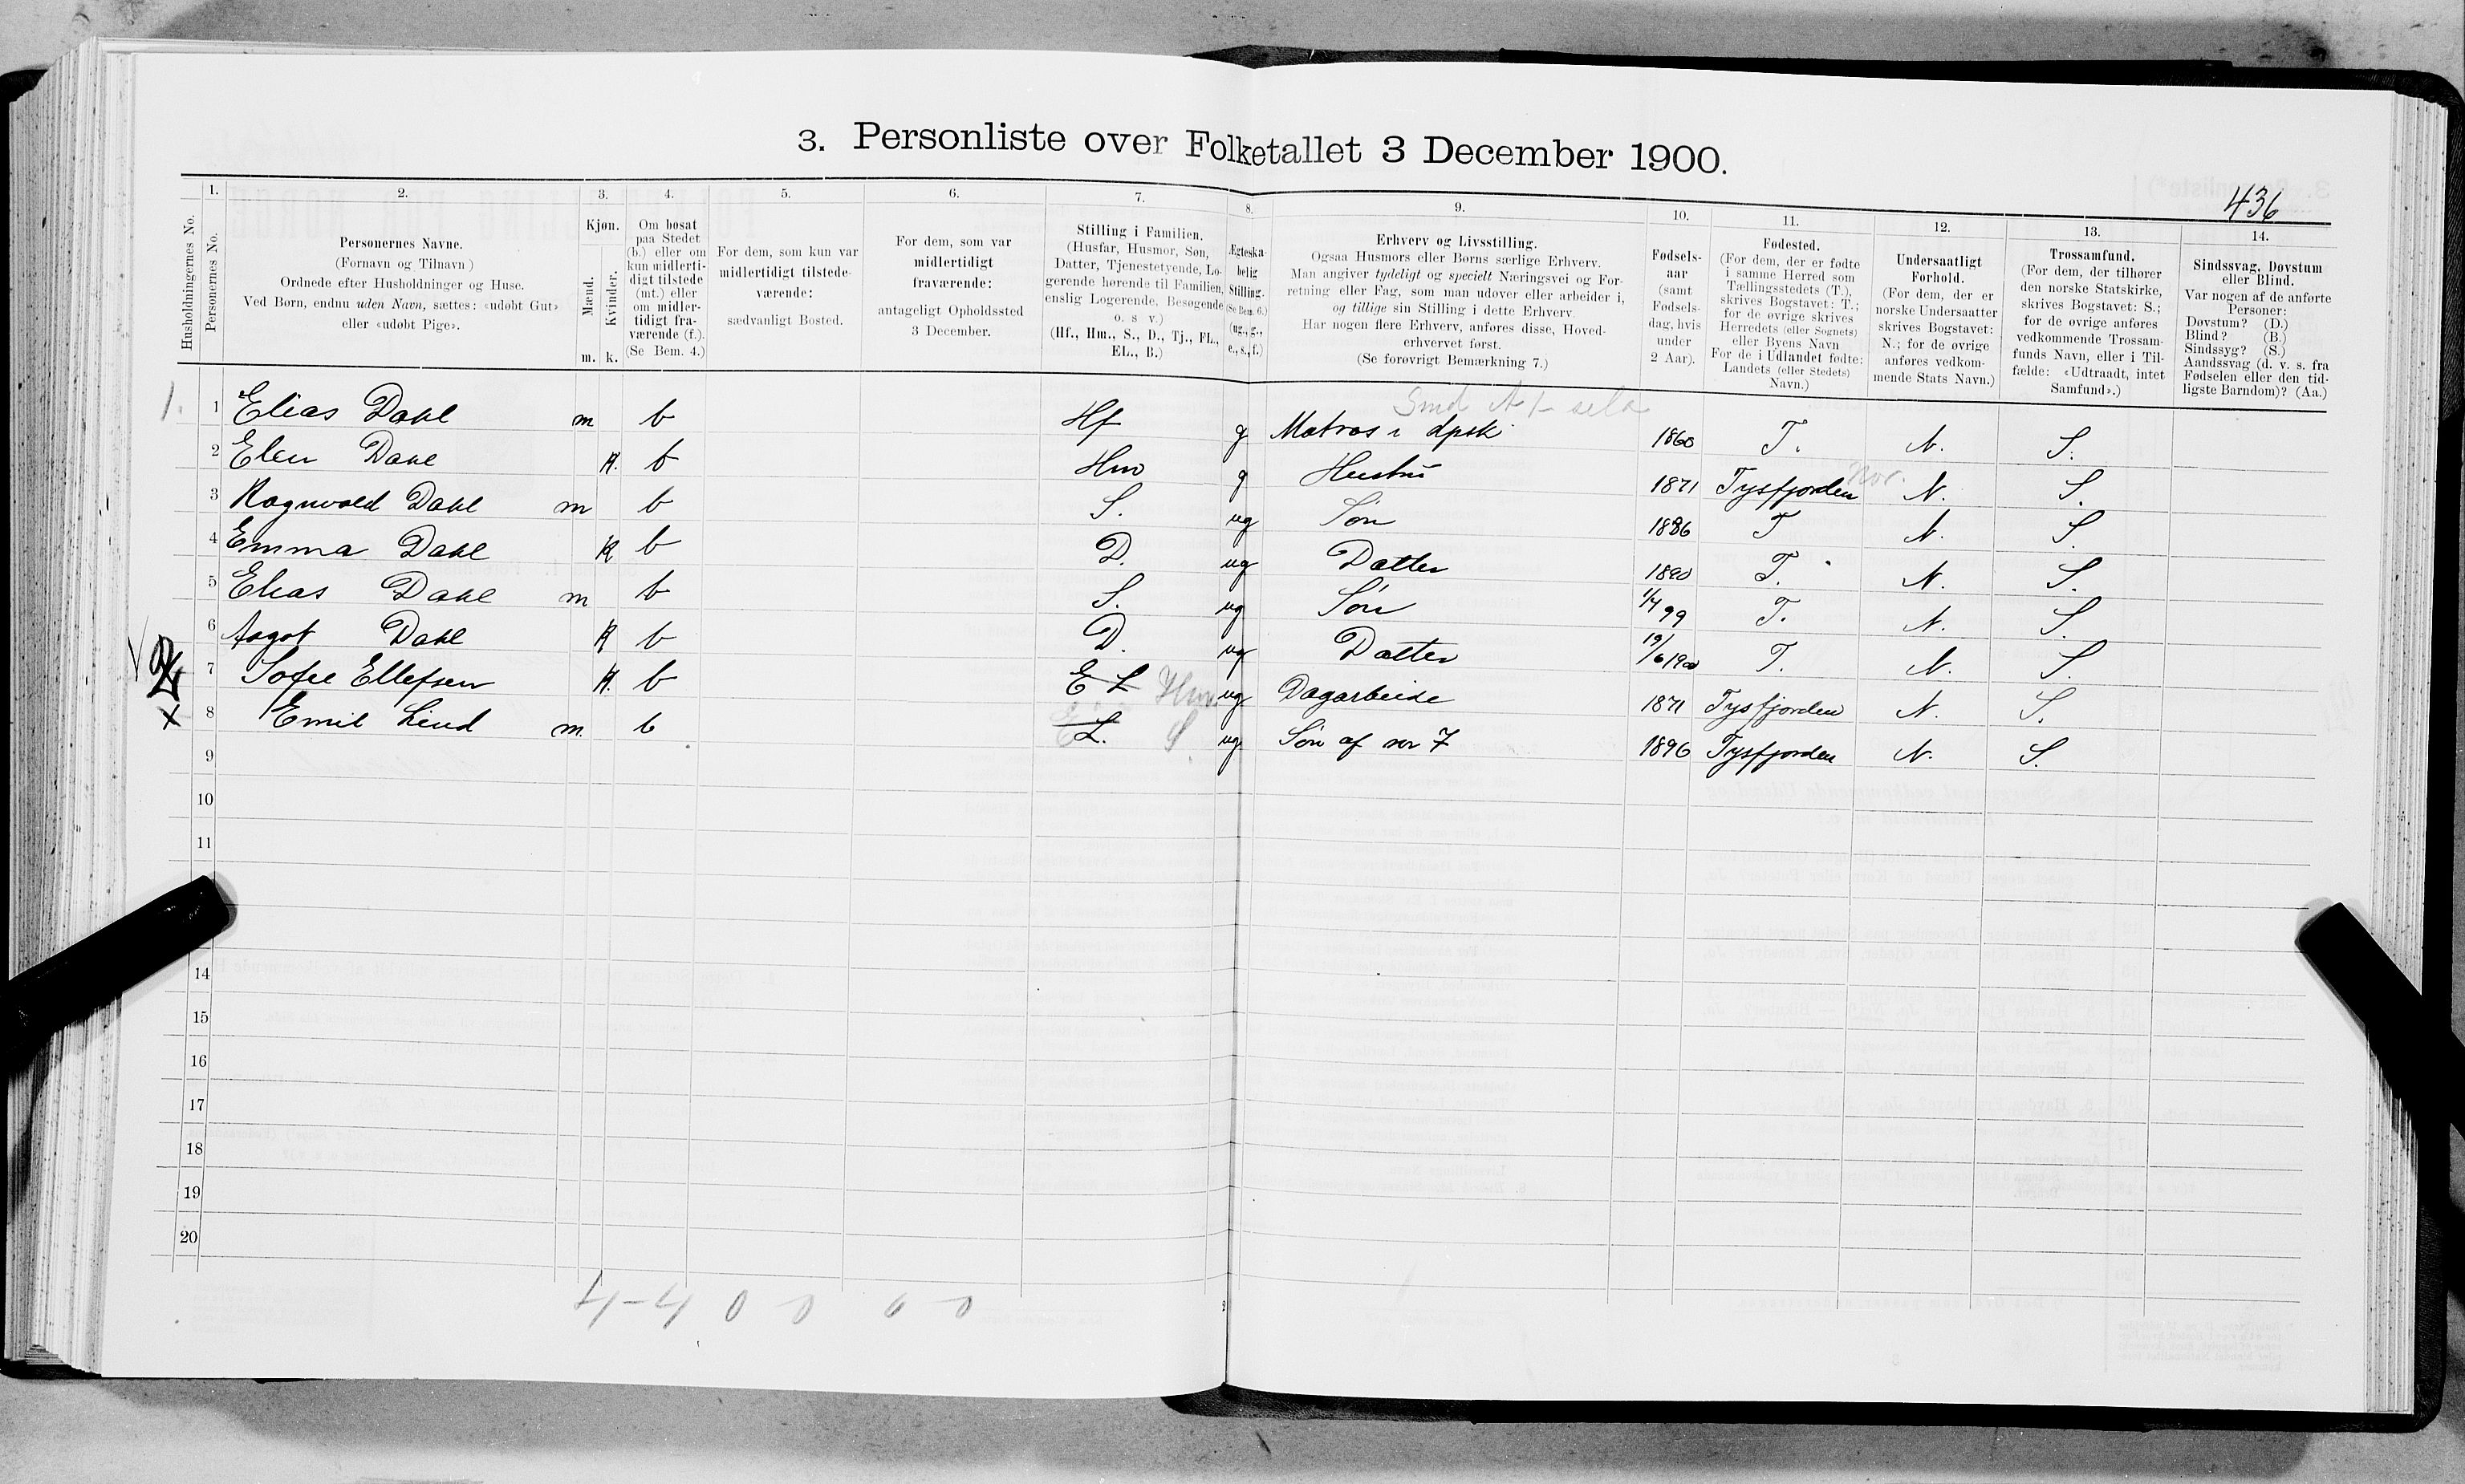 3. Personliste over Folketallet 3 December 1900.
436
Husholdningernes No.
1.
Personernes No.
2.
Personernes Navne.
(Fornavn og Tilnavn)
Ordnede efter Husholdninger og Huse.
Ved Børn, endnu uden Navn, sættes: «udøbt Gut»
eller «udøbt Pige».
3.
Kjøn.
Mænd.
Kvinder.
m. k.
4.
Om bosat
paa Stedet
(b.) eller om
kun midlerti-
digt tilstede
(mt.) eller
om midler-
tidigt fra-
værende (f.).
(Se Bem. 4.)
5.
For dem, som kun var
midlertidigt tilstede-
værende:
sædvanligt Bosted.
6.
For dem, som var
midlertidigt
fraværende:
antageligt Opholdssted
3 December.
7.
Stilling i Familien.
(Husfar, Husmor, Søn,
Datter, Tjenestetyende, Lo-
gerende hørende til Familien,
enslig Logerende, Besøgende
o. s v.)
(Hf., Hm., S., D., Tj., FL.,
EL., B.)
8.
Ægteska-
belig
Stilling.
(Se Bem. 6.)
(ug., g.,
e., s., f.)
9.
Erhverv og Livsstilling.
Ogsaa Husmors eller Børns særlige Erhverv.
Man angiver tydeligt og specielt Næringsvei og For-
retning eller Fag, som man udøver eller arbeider i,
og tillige sin Stilling i dette Erhverv.
Har nogen flere Erhverv, anføres disse, Hoved-
erhvervet først.
(Se forøvrigt Bemærkning 7.)
10.
Fødsels-
aar
(samt
Fødsels-
dag, hvis
under
2 Aar).
11.
Fødested.
(For dem, der er fødte
i samme Herred som
Tællingsstedets (T.),
skrives Bogstavet: T.;
for de øvrige skrives
Herredets (eller Sognets)
eller Byens Navn
For de i Udlandet fødte:
Landets (eller Stedets)
Navn.)
12.
Undersaatligt
Forhold.
(For dem, der er
norske Undersaatter
skrives Bogstavet:
N.; for de øvrige
anføres vedkom-
mende Stats Navn.)
13.
Trossamfund.
(For dem, der tilhører
den norske Statskirke,
skrives Bogstavet: S.;
for de øvrige anføres
vedkommende Trossam-
funds Navn, eller i Til-
fælde: «Udtraadt, intet
Samfund».)
14.
Sindssvag, Døvstum
eller Blind.
Var nogen af de anførte
Personer:
Døvstum? (D.)
Blind? (B.)
Sindssyg? (S.)
Aandssvag (d. v. s. fra
Fødselen eller den tid-
ligste Barndom)? (Aa.)
1. 1 Elias Dahl m b Hf g Matros i dpsk 1860 T. N. S.
2 Elen Dahl K. b Hm g Hustru 1871 Tysfjorden Nor. N. S.
3 Ragnvald Dahl m b S. ug Søn 1886 T N. S.
4 Emma Dahl K b D. ug Datter 1890 T. N. S.
5 Elias Dahl m b S. ug Søn 1/4 99 T. N. S.
6 Aagot Dahl K b D. ug Datter 19/6 1900 T. N. S.
2 7 Sofie Ellefsen K. b E L Hm ug Dagarbeide 1871 Tysfjorden N. S.
x 8 Emil Lind m. b L. S ug Søn af nr 7 1896 Tysfjorden N. S.
9
10
11
14
15
16
17
18
19
20
4 - 4 0 0 0 0